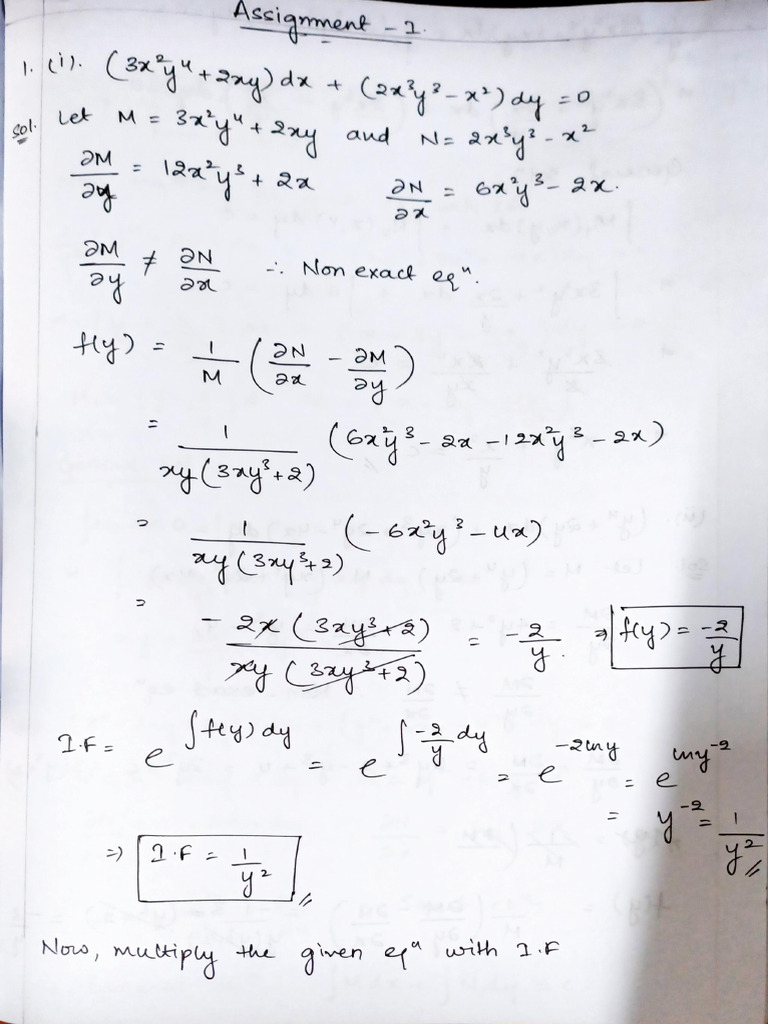 Assignment - 1.
1. (i). (3x²y⁴ + 2xy) dx + (2x³y³ - x²) dy = 0
Sol. Let M = 3x²y⁴ + 2xy and N = 2x³y³ - x²
∂M/∂y = 12x²y³ + 2x ∂N/∂x = 6x²y³ - 2x.
∂M/∂y ≠ ∂N/∂x ∴ Non exact eqⁿ.
f(y) = 1/M (∂N/∂x - ∂M/∂y)
= 1/(xy(3xy³+2)) (6x²y³ - 2x - 12x²y³ - 2x)
= 1/(xy(3xy³+2)) (-6x²y³ - 4x)
= -2x(3xy³+2)/(xy(3xy³+2)) = -2/y. ⇒ f(y) = -2/y
I.F = e^∫f(y)dy = e^∫-2/y dy = e^-2lny = e^lny⁻²
= y⁻² = 1/y²
⇒ I.F = 1/y²
Now, multiply the given eqⁿ with I.F